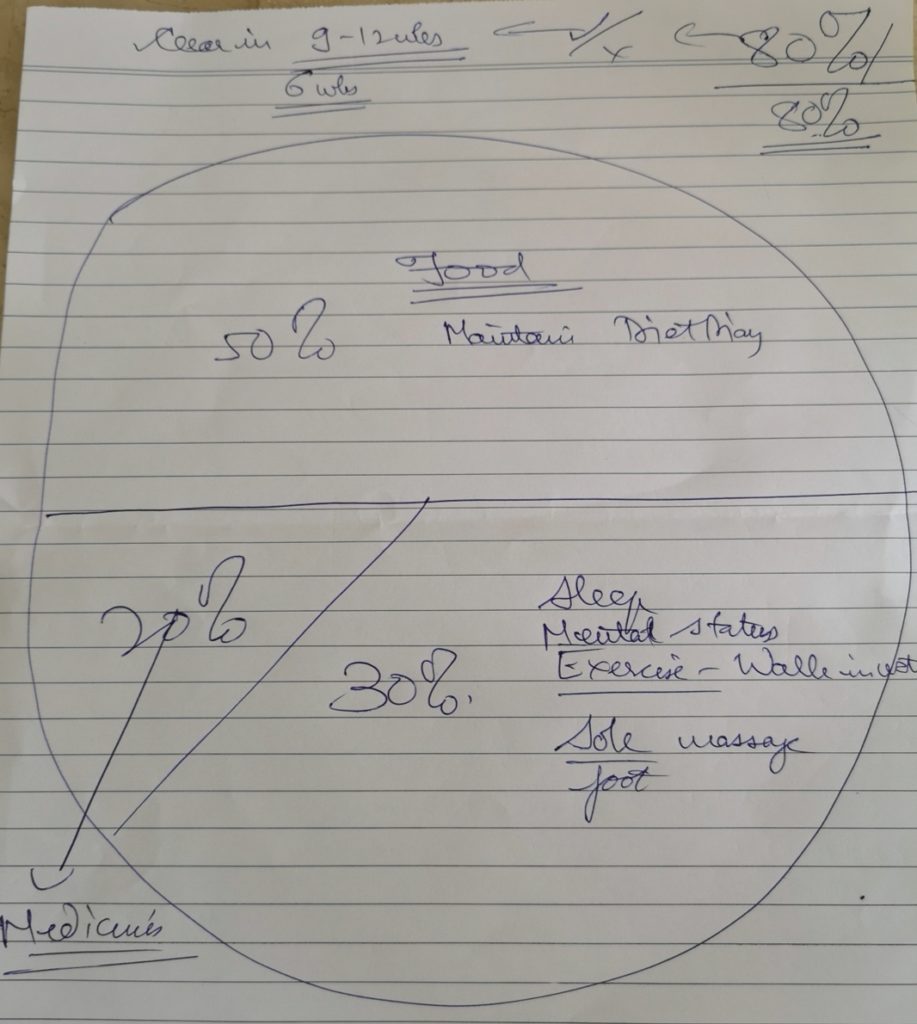 in 9-12 wks ← 1/x ← 80%/
6 wks
80%
Food
50% Maintain Diet Diary
20%
30%.
Sleep
Mental status
Exercise - Walk in
Sole massage
foot
Medicines